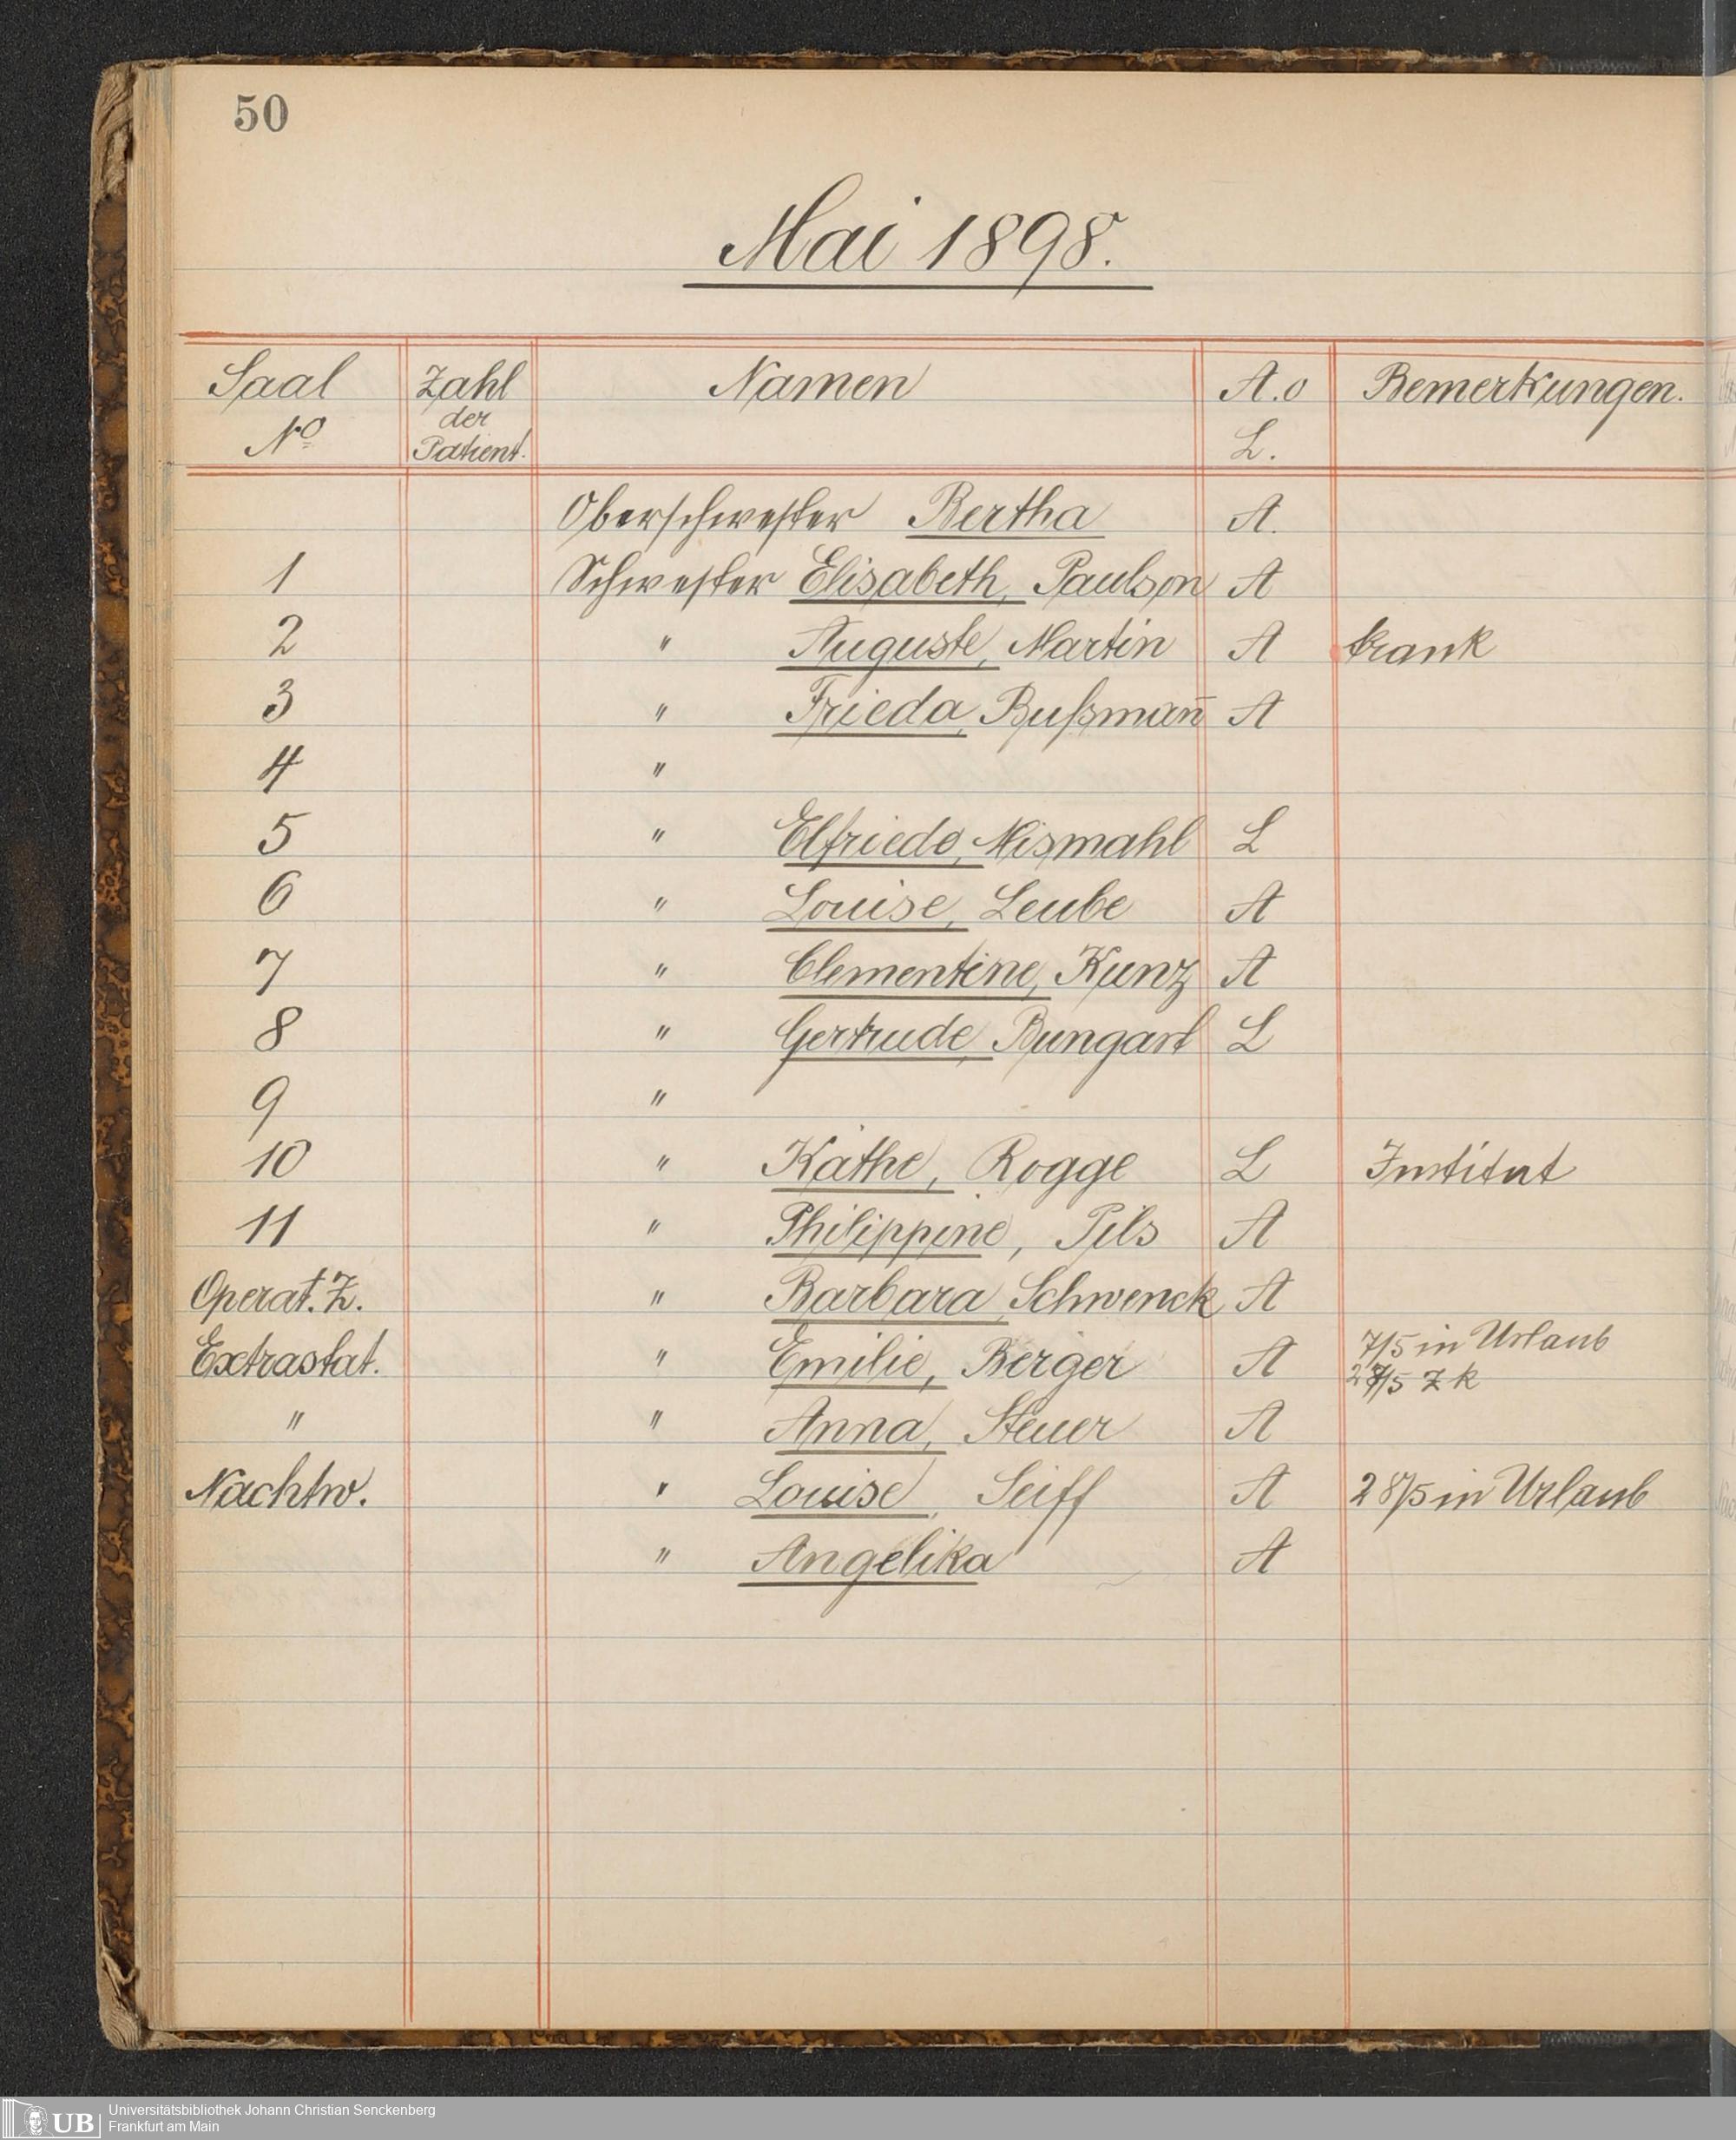 50
Mai 1898.
Saal No Zahl der Patient. Namen A. o L. Bemerkungen.
Oberschwester Bertha A.
1 Schwester Elisabeth, Paulson A
2 " Auguste, Martin A krank
3 " Frieda, Bußman̄ A
4 "
5 " Elfriede, Mismahl L
6 " Louise, Leube A
7 " Clementine, Kunz A
8 " Gertrude, Bungart L
9 "
10 " Käthe, Rogge L Institut
11 " Philippine, Pils A
Operat. Z. " Barbara, Schwenck A
Extrastat. " Emilie, Berger A 7/5 in Urlaub
5 Z k
" " Anna, Steuer A
Nachtw. " Louise, Seiff A 28/5 in Urlaub
" Angelika A
UB Universitätsbibliothek Johann Christian Senckenberg
Frankfurt am Main